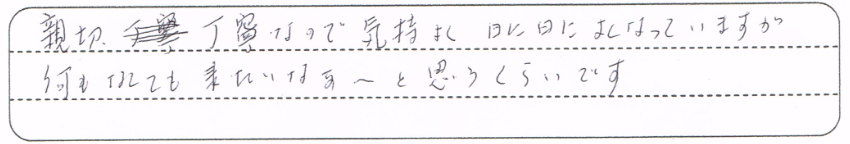 親切、丁寧なので気持よく 日に日によくなっていますが
何もなくても来たいなぁ～と思うくらいです